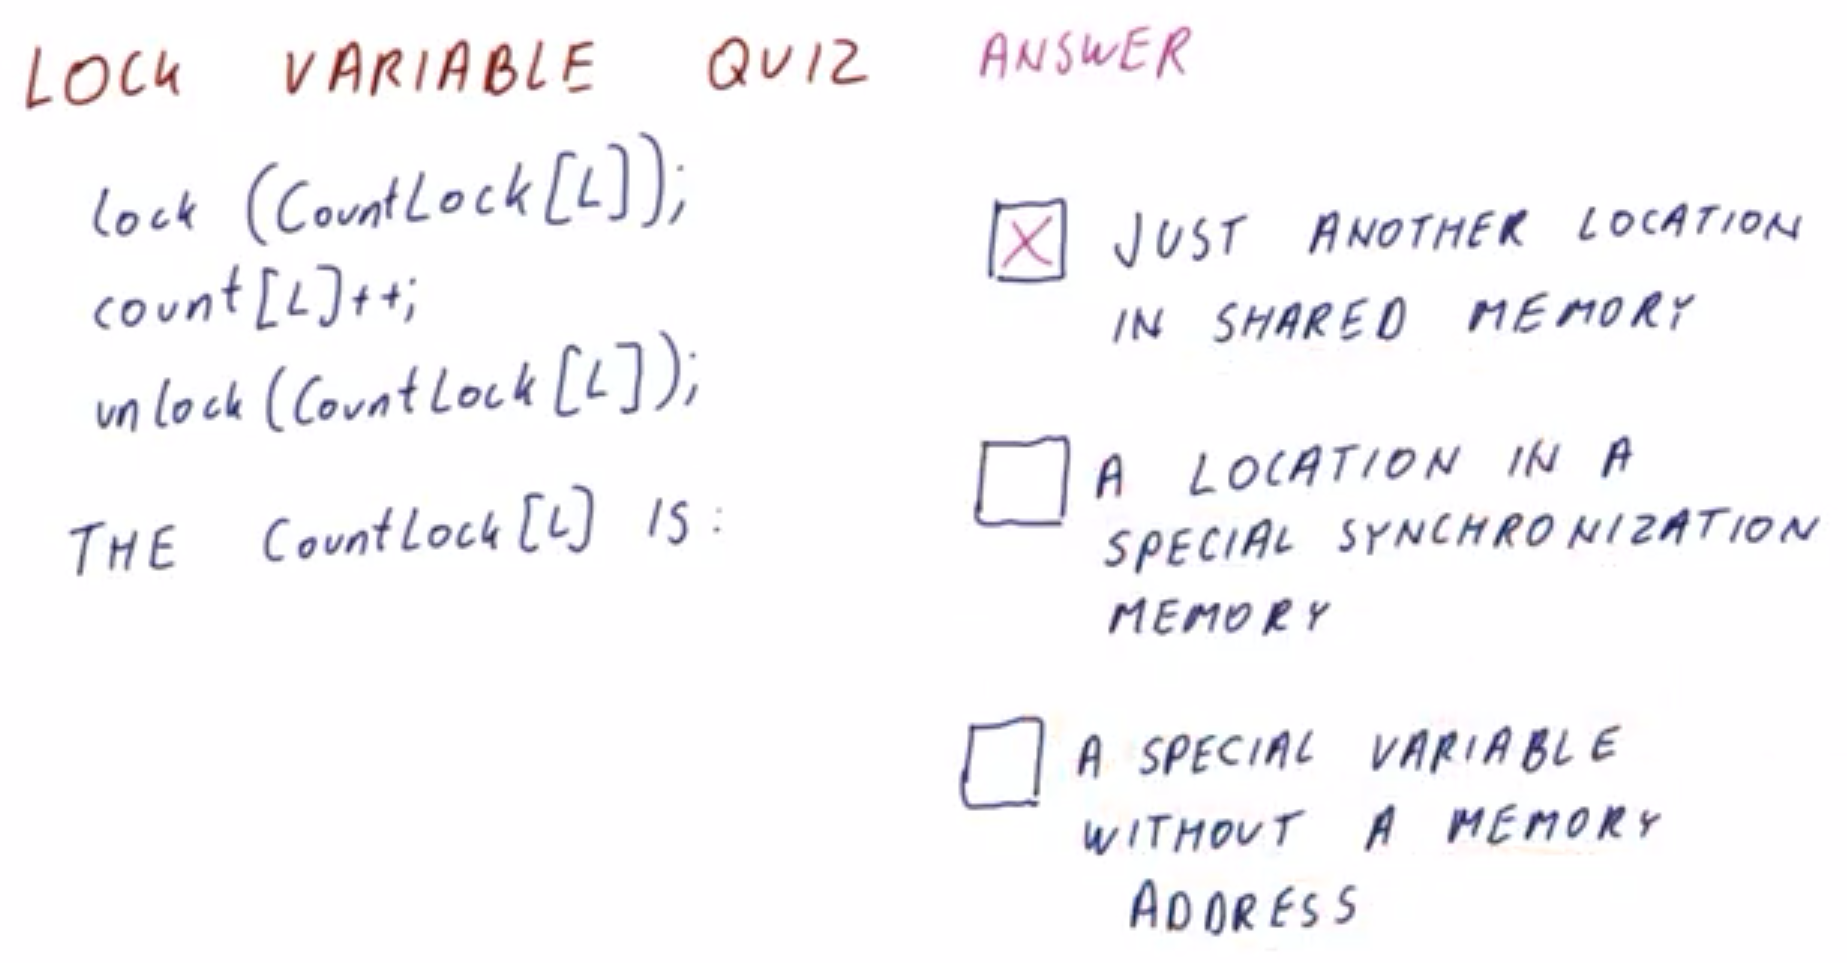 LOCK VARIABLE QUIZ ANSWER
lock (CountLock[L]);
count[L]++;
unlock (CountLock[L]);
THE CountLock[L] IS:
X JUST ANOTHER LOCATION
IN SHARED MEMORY
A LOCATION IN A
SPECIAL SYNCHRONIZATION
MEMORY
A SPECIAL VARIABLE
WITHOUT A MEMORY
ADDRESS